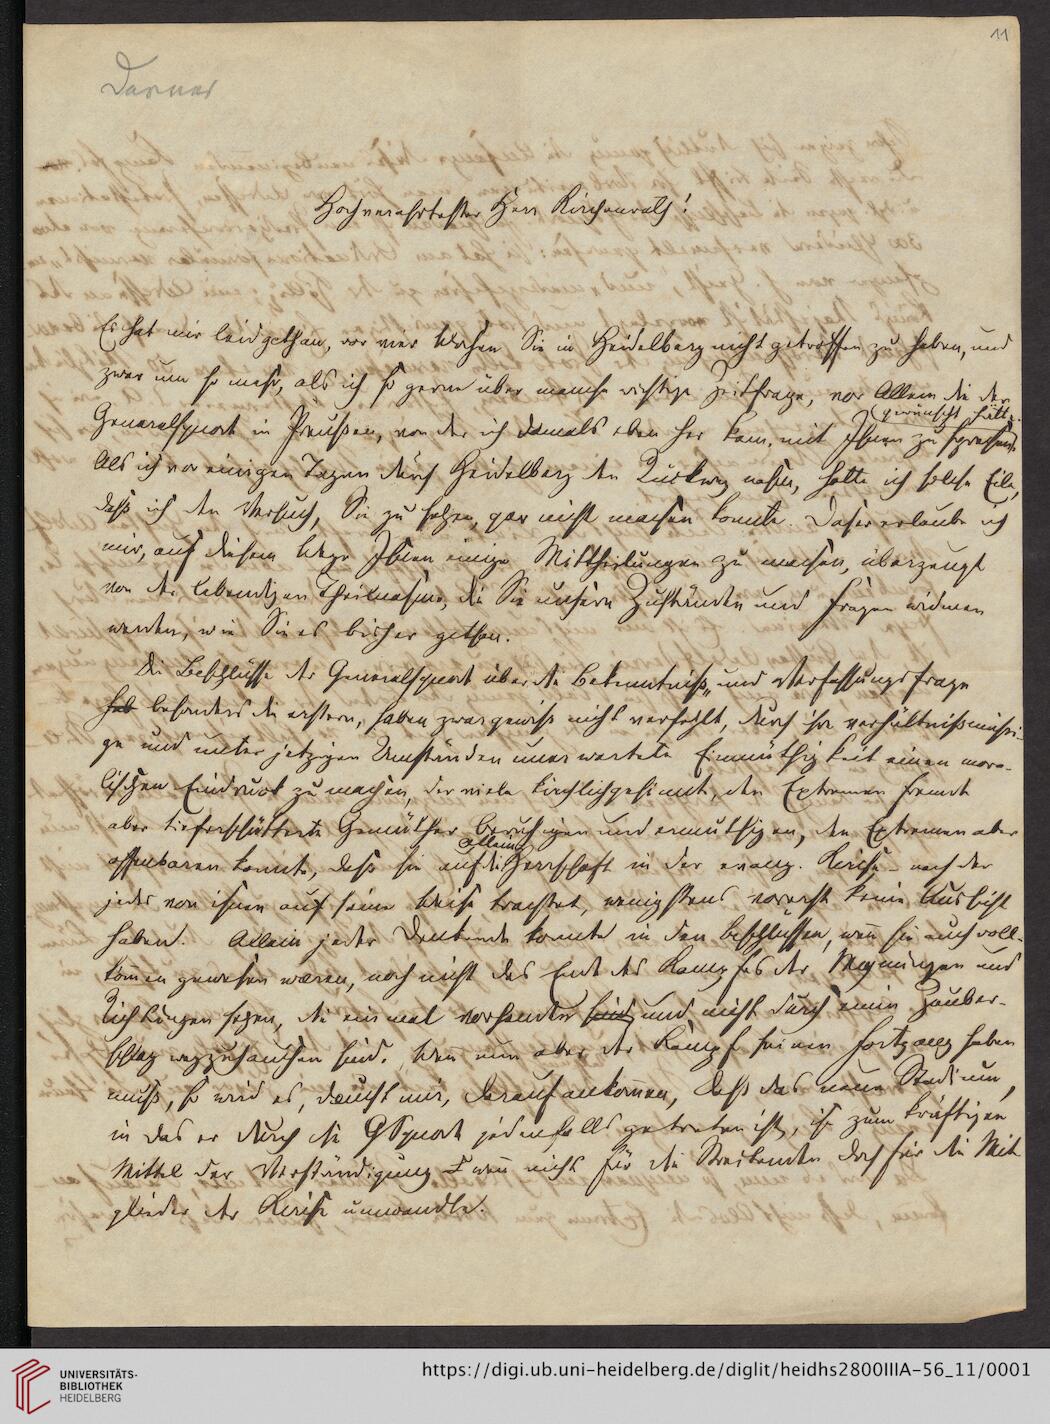 11
Dorner
Hochverehrtester Herr Kirchenrath!
Es hat mir leid gethan, vor vier Wochen Sie in Heidelberg nicht getroffen zu haben, und
zwar um so mehr, als ich so gerne über manche wichtige Zeitfrage, vor Allem die der
Generalsynode in Preußen, von der ich damals eben her kam, mit Ihnen zu sprechen
gewünscht hätte.
Als ich vor einigen Tagen durch Heidelberg den Rückweg nahm, hatte ich solche Eile,
daß ich den Versuch, Sie zu sehen, gar nicht machen konnte. Daher erlaube ich
mir, auf diesem Wege Ihnen einige Mittheilungen zu machen, überzeugt
von der lebendigen Theilnahme, die Sie unsern Zuständen und Fragen widmen
werden, wie Sie es bisher gethan.
Die Beschlüsse der Generalsynode über die Bekenntniß- und Verfassungsfrage
hab besonders die erstere, haben zwar gewiß nicht verfehlt, durch ihre verhältnißmäßi-
ge und unter jetzigen Umständen unerwartete Einmüthigkeit einen mora-
lischen Eindruck zu machen, der viele kirchlichgesinnte, den Extremen fremde
aber tieferschütterte Gemüther beruhigen und ermuthigen, den Extremen aber
offenbaren konnte, daß sie auf die Herrschaft in der evang. Kirche - nach der
allein
jeder von ihnen auf seine Weise trachtet, wenigstens vorerst keine Aussicht
haben. Allein jeder Denkende konnte in den Beschlüssen, wenn sie auch voll-
kommen gewesen wären, noch nicht das Ende des Kampfes der Meynungen und
Richtungen sehen, die einmal vorhanden sind und nicht durch einen Zauber-
schlag wegzuhauchen sind. Wenn nun aber der Kampf seinen Fortgang haben
muß, so wird es, däucht mir, darauf ankommen, daß das neue Stadium,
in das er durch die GSynode jedenfalls getreten ist, sich zum kräftigen
Mittel der Verständigung wenn nicht für die Streitenden doch für die Mit
glieder der Kirche umwandle.
UNIVERSITÄTS-
BIBLIOTHEK
HEIDELBERG
https://digi.ub.uni-heidelberg.de/diglit/heidhs2800IIIA-56_11/0001